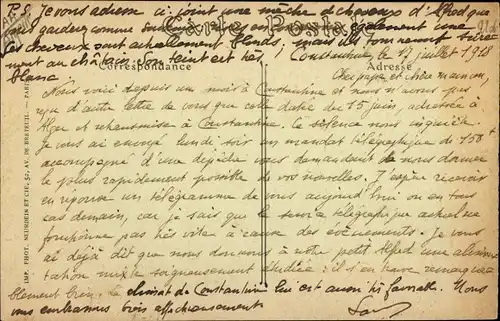 P.S. Je vous adresse ci joint une mèche de cheveux d'Alfred que
vous garderez comme souvenir également comme
les cheveux sont actuellement blonds, mais ils tourneront
ment au châtain. Son teint est très
blanc
Carte Postale
Correspondance
Adresse
Constantine le 17 juillet 1918
Cher papa et chère maman,
Nous voici depuis un mois à Constantine et nous n'avons pas
reçu d'autre lettre de vous que celle datée du 15 juin, adressée à
Alger et retransmise à Constantine. Ce silence nous inquiète.
Je vous ai envoyé lundi soir un mandat télégraphique de 150
accompagné d'une dépêche vous demandant de nous donner
le plus rapidement possible de vos nouvelles. J'espère recevoir
en réponse un télégramme de vous aujourd'hui ou en tous
cas demain, car je sais que le service télégraphique actuel ne
fonctionne pas très vite à cause des évènements. Je vous
ai déjà dit que nous donnons à notre petit Alfred une alimen
tation mixte soigneusement étudiée : il s'en trouve remarqua
blement bien. Le climat de Constantine lui est aussi très favorable. Nous
vous embrassons bien affectueusement
IMP. PHOT. NEURDEIN ET CIE, 52, AV. DE BRETEUIL. — PARIS